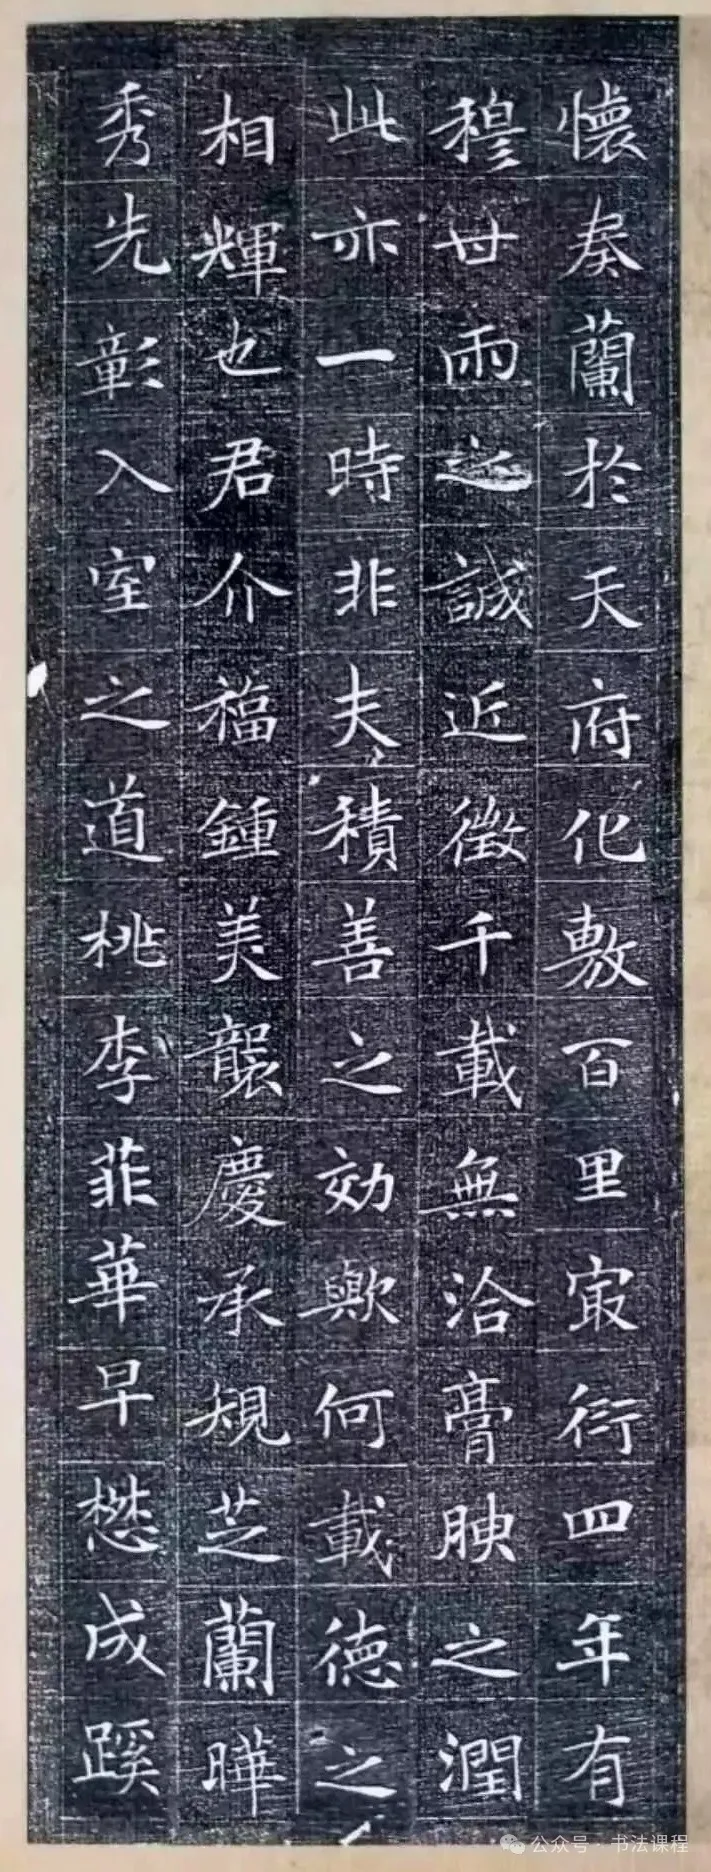 懐奏蘭於天府化敷百里㝡衍四年有
穆世雨之誠近徵千載無洽膏腴之潤
此亦一時非夫積善之効歟何載德之
相輝也君介福鍾美襲慶承規芝蘭曄
秀先彰入室之道桃李菲華早懋成蹊
公众号·书法课程